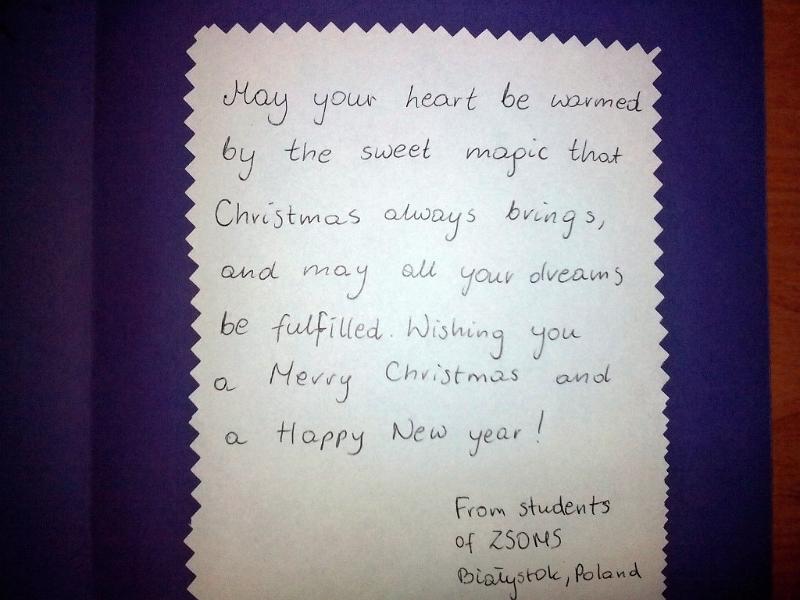 May your heart be warmed
by the sweet magic that
Christmas always brings,
and may all your dreams
be fulfilled. Wishing you
a Merry Christmas and
a Happy New year!
From students
of ZSOMS
Białystok, Poland